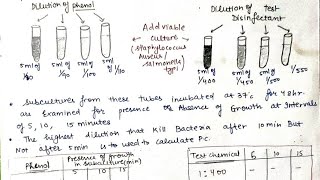 Dilution of phenol
Dilution of Test
Disinfectant
Add viable
culture
(staphylococcus
Aureus/
salmonella
typi)
5ml of
1/80
5ml of
1/90
5ml of
1/100
5ml of
1/110
5ml of
1/400
5ml of
1/450
5ml of
1/500
1/550
• Subcultures from these tubes incubated at 37°C for 48hr.
are Examined for presence or Absence of Growth at Intervals
of 5, 10, 15 minutes
• The highest dilution that Kill Bacteria after 10 min But
Not after 5 min is to used to calculate P.C.
Phenol
Presence of growth
in subculture (min)
5 10 15
Test chemical 5 10 15
1:400 -